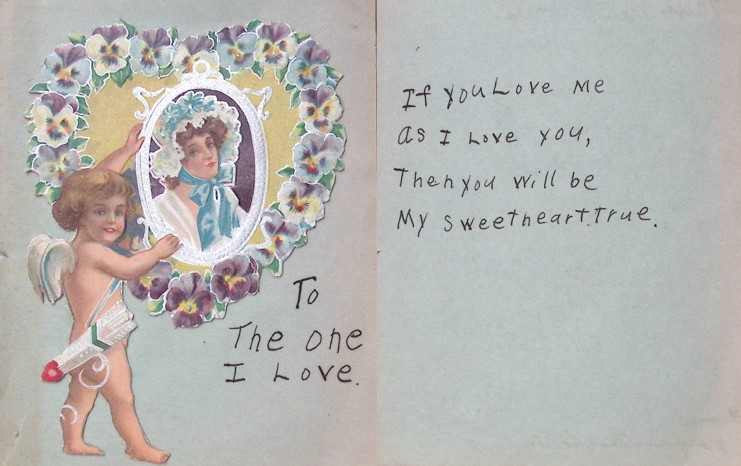 To
The one
I Love.
If you Love me
as I Love you,
Then you will be
My sweetheart.True.